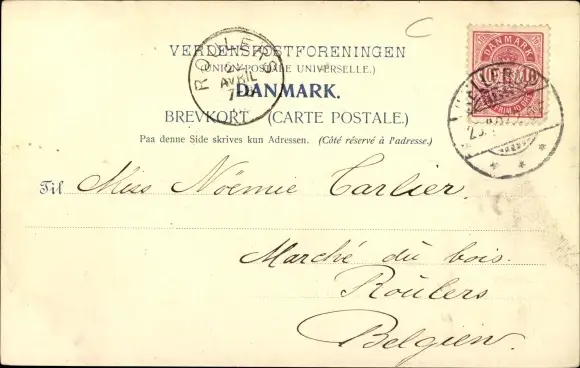 C
VERDENSPOSTFORENINGEN
(UNION POSTALE UNIVERSELLE.)
DANMARK.
BREVKORT. (CARTE POSTALE.)
Paa denne Side skrives kun Adressen. (Côté réservé à l'adresse.)
ROULERS
AVRIL
DANMARK
Til Miss Noëmie Carlier.
Marché du bois.
Roulers
Belgien.